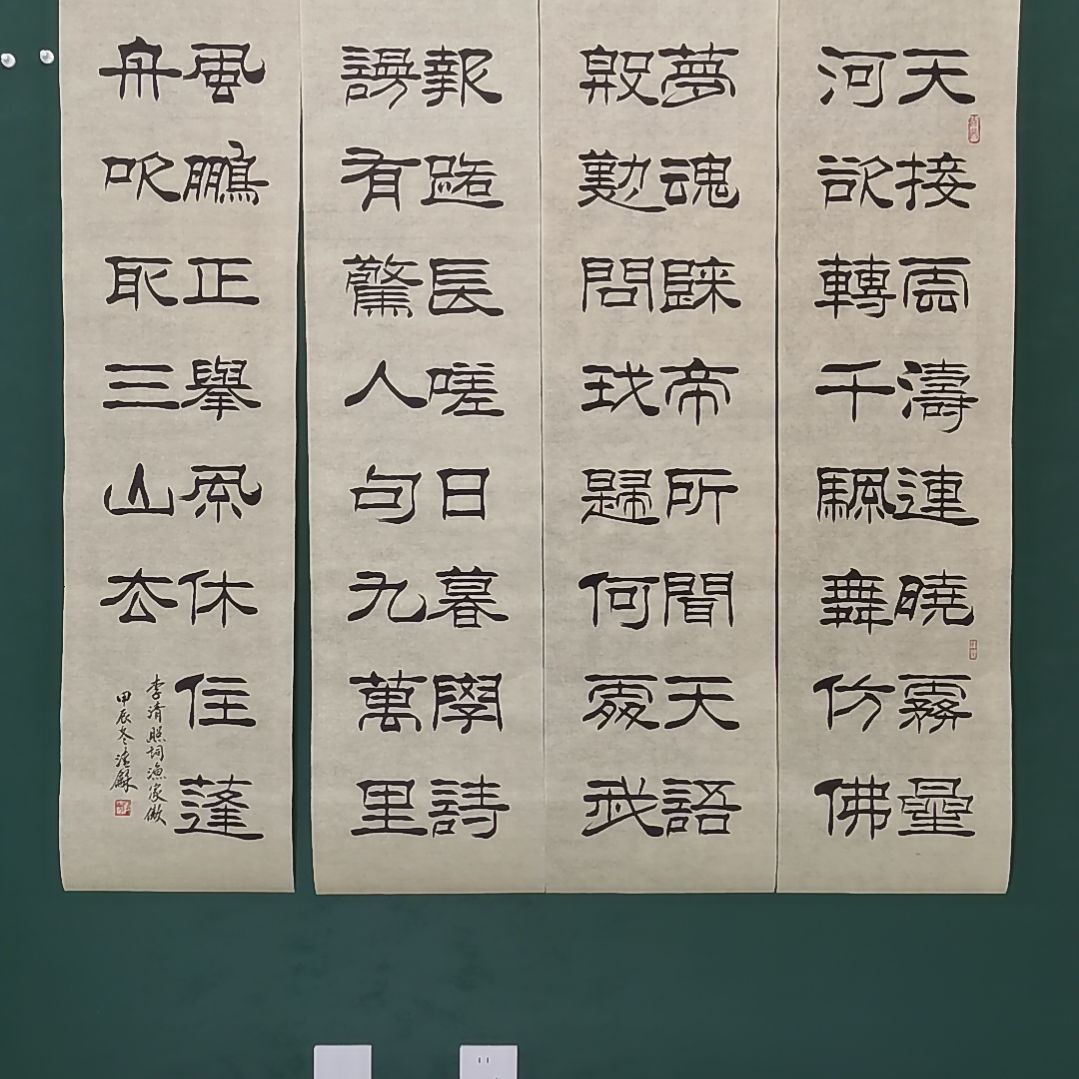 天接雲濤連曉霧星
河欲轉千颿舞仿佛
夢魂歸帝所聞天語
殷勤問我歸何處我
報路長嗟日暮學詩
謾有驚人句九萬里
風鵬正舉風休住蓬
舟吹取三山去
李清照詞漁家傲
甲辰冬錄